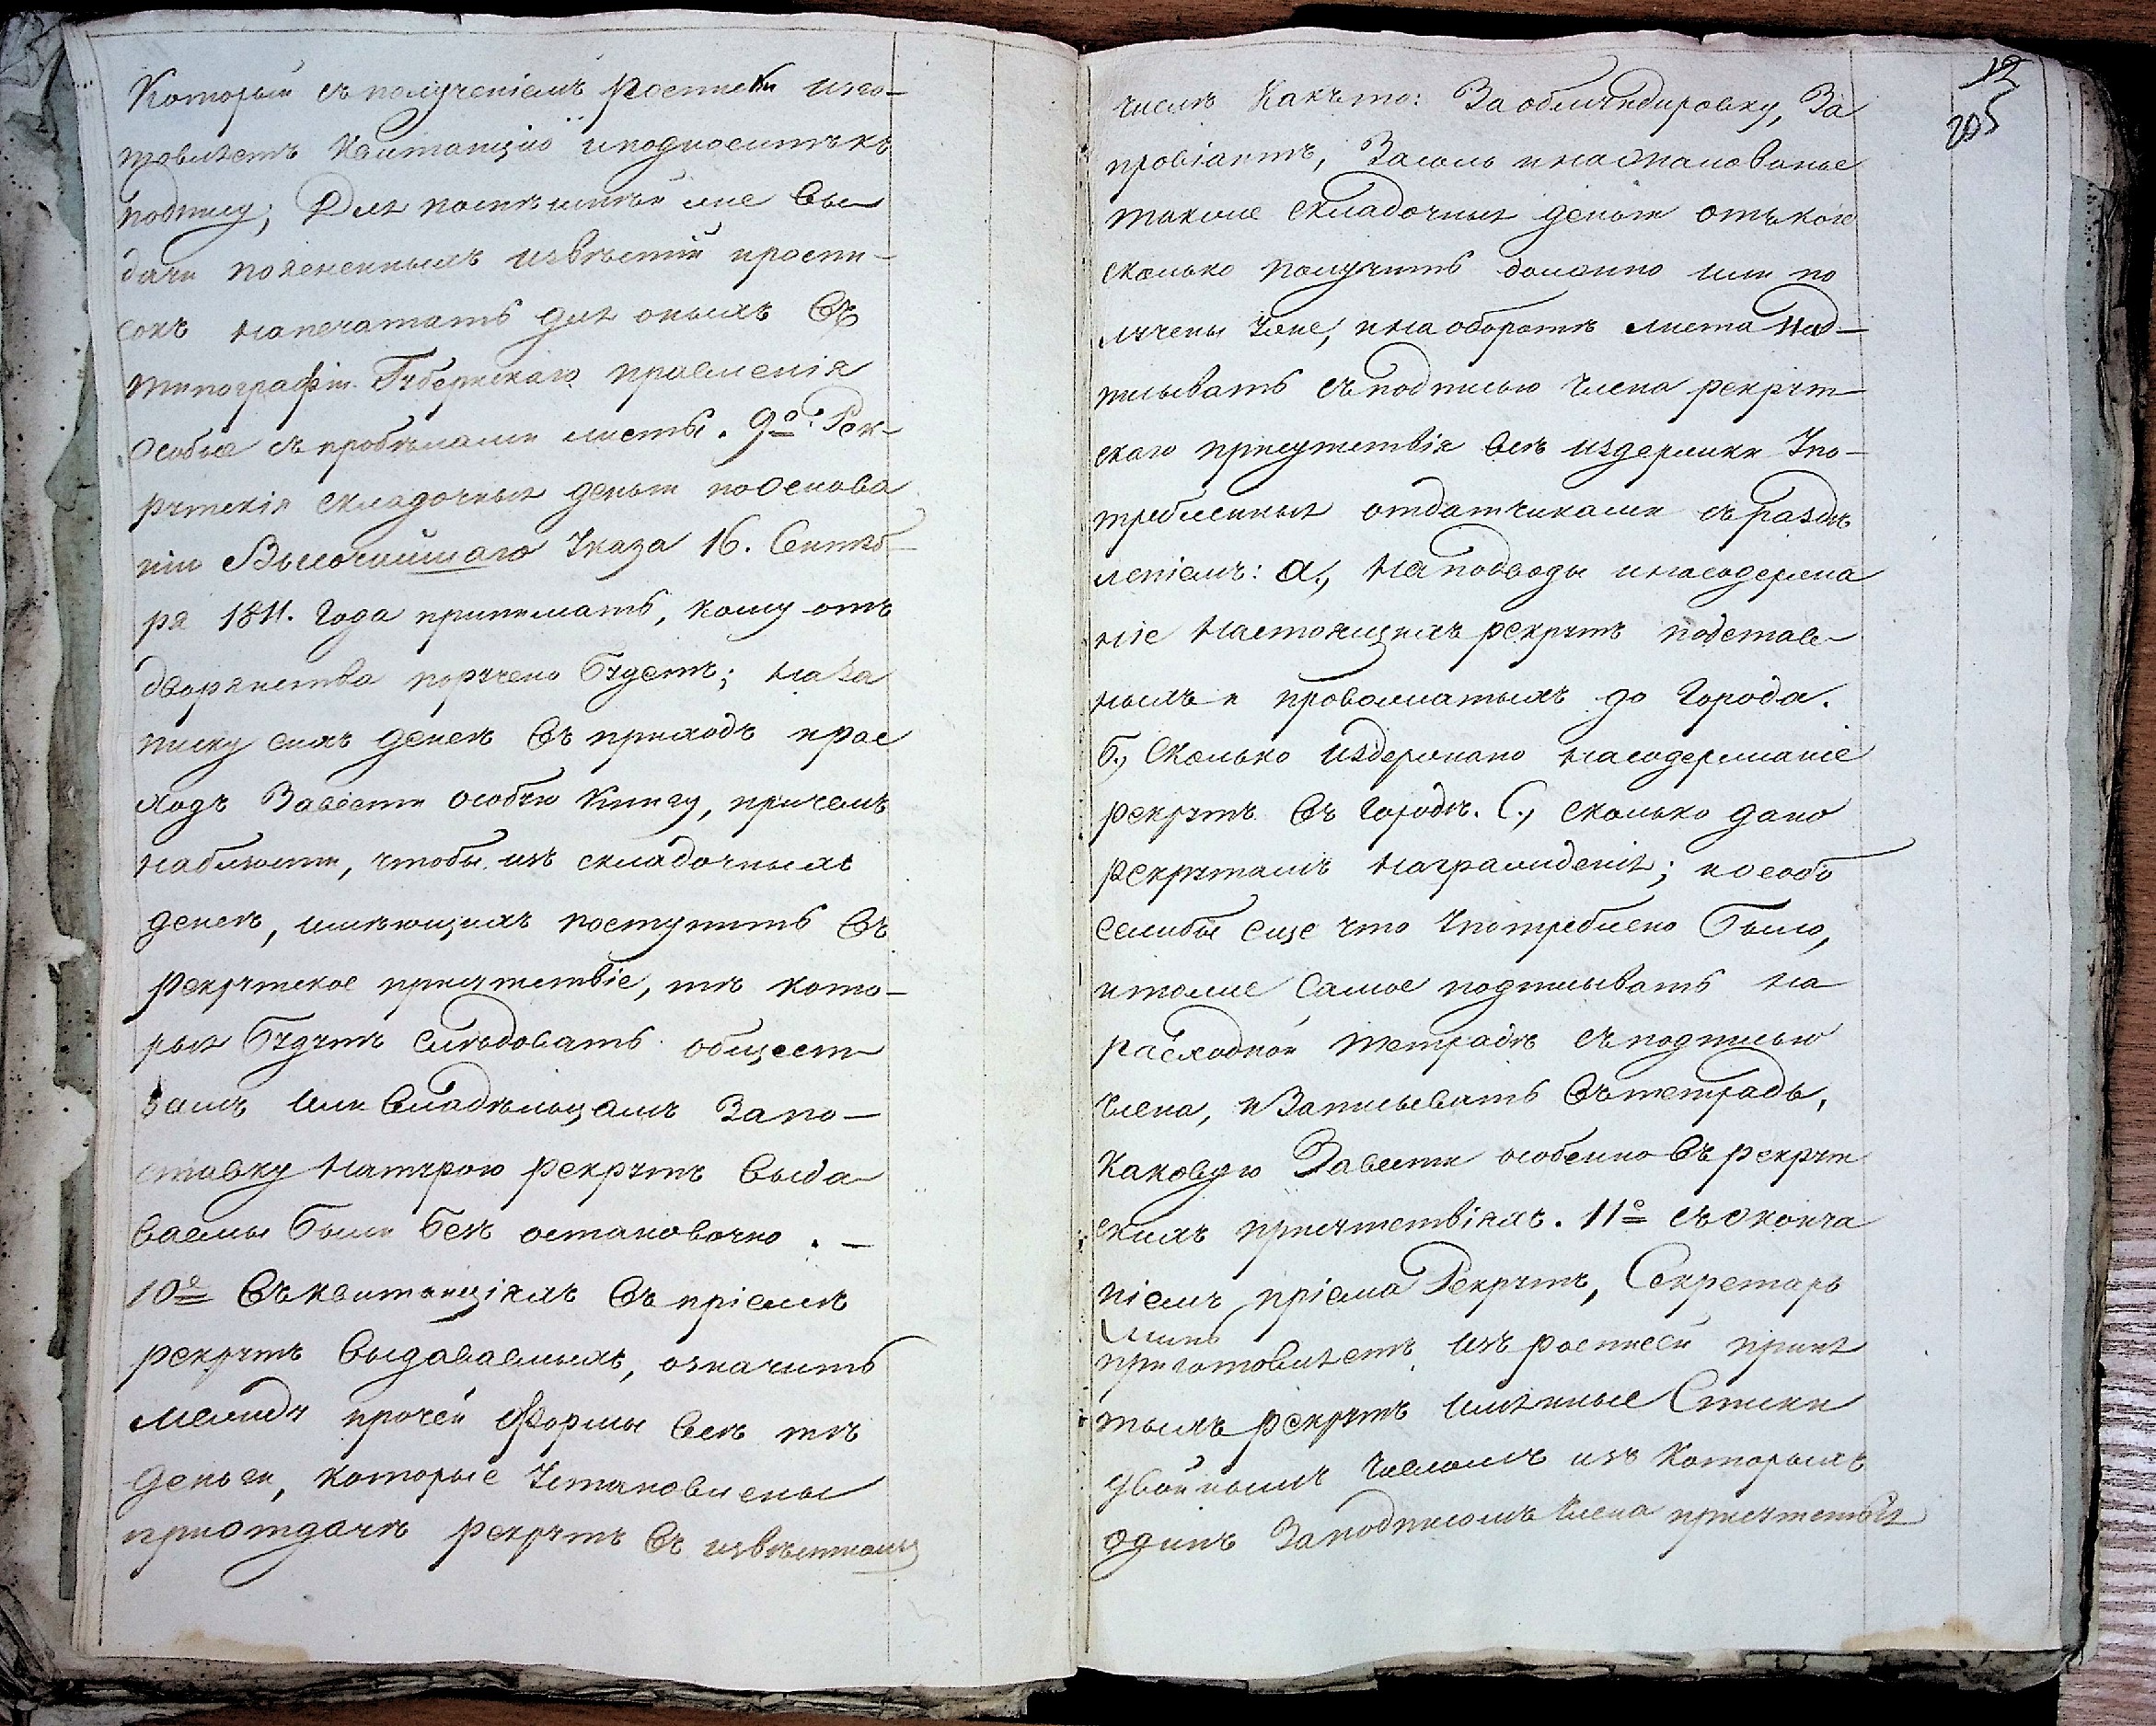 Который съ полученіемъ росписки изго-
товляетъ Квитанцію и подноситъ къ
подпису; Для поспѣшнѣйшие вы
дачи поясненныхъ извѣстій простри-
сокъ напечатать для оныхъ въ
типографіи Губернскаго правленія
Особые съ пробѣлами листы. 9е. Рек-
рутскія складочныя деньги по Основа
ніи Высочайшаго Указа 16. Сентяб-
ря 1811. Года принимать, кому отъ
дворянства поручено будетъ; на за
писку сихъ денегъ въ приходъ и рас
ходъ Завести особую Книгу, причемъ
наблюсти, чтобы изъ складочныхъ
денегъ, имѣющихъ поступить въ
рекрутское присутствіе, тѣ кото-
рыя будутъ слѣдовать общест
вамъ или владѣльцамъ За по-
ставку натурою рекрутъ выда-
ваемы были безъ остановочно. —
10е Въ квитанціяхъ въ пріемѣ
рекрутъ выдаваемыхъ, означить
между прочей Формы всѣ тѣ
деньги, которые Установлены
при отдачѣ рекрутъ въ извѣстномъ
12
205
числѣ какъ то: За обмундировку, За
провіантъ, За соль и на Жалованье
также складочныя деньги отъ кого
сколько получить должно или по
лучены Уже, и на оборотѣ листа Над-
писывать съ подписью Члена рекрут-
скаго присутствія всѣ издержки Упо-
требленныя отдатчиками съ раздѣ
леніемъ: а., На подводы и на содержа
ніе настоящихъ рекрутъ подстав-
ныхъ и провожатыхъ до Города.
б., Сколько издержано на содержаніе
рекрутъ въ Городѣ. С., сколько дано
рекрутамъ награжденія; и особо
естьлибы еще что Употреблено было,
и тоже самое подписывать на
расходной тетрадѣ съ подписью
Члена, и Записывать въ тетрадь,
Каковую Завести особенно въ рекрут
скихъ присутствіяхъ. 11е съ оконча
ніемъ пріема Рекрутъ, Секретарь
приготовляетъ изъ росписей приня
тыхъ рекрутъ имянные Списки
двойнымъ числомъ изъ Которыхъ
одинъ За подписомъ Члена присутствія